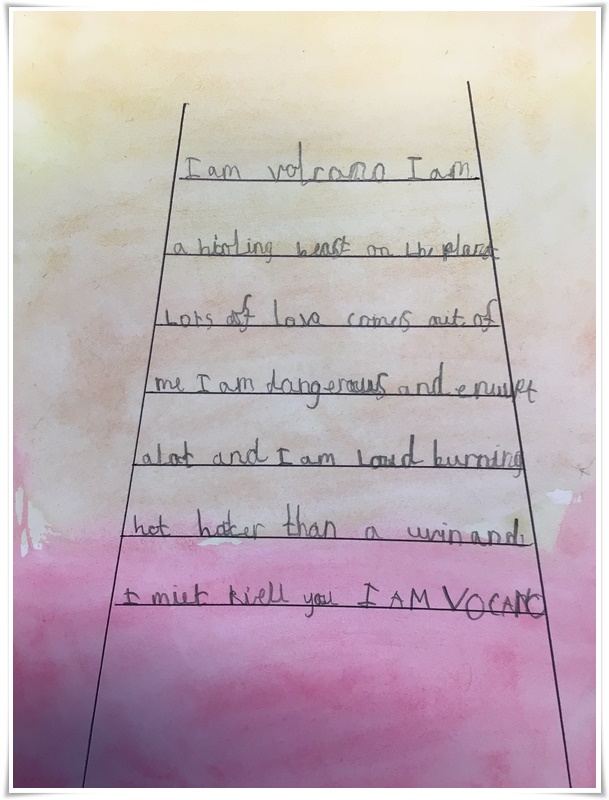 I am volcano I am
a bioling beast on the planet
Lots of lava comes out of
me I am dangerous and erruupt
alot and I am loud burning
hot hoter than a uvin and
I miet kiell you I AM VOCANO